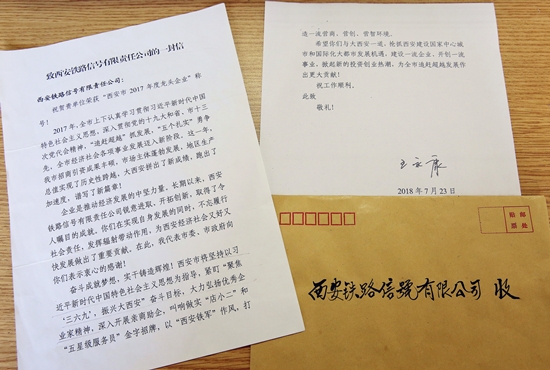 致西安铁路信号有限责任公司的一封信
西安铁路信号有限责任公司：
祝贺贵单位荣获“西安市2017年度龙头企业”称
号！
2017年，全市上下认真学习贯彻习近平新时代中国
特色社会主义思想，深入贯彻党的十九大和省、市十三
次党代会精神，“追赶超越”抓发展，“五个扎实”勇争
先，全市经济社会各项事业发展迈入新阶段。这一年，
我市招商引资成果丰硕，市场主体蓬勃发展，地区生产
总值实现了历史性跨越，大西安拼出了新成绩，跑出了
加速度，谱写了新篇章！
企业是推动经济发展的中坚力量，长期以来，西安
铁路信号有限责任公司锐意进取、开拓创新，取得了令
人瞩目的成就。你们在实现自身发展的同时，不忘履行
社会责任，发挥辐射带动作用，为西安经济社会又好又
快发展做出了重要贡献。在此，我代表市委、市政府向
你们表示衷心的感谢！
奋斗成就梦想，实干铸造辉煌！西安市将坚持以习
近平新时代中国特色社会主义思想为指导，紧盯“聚焦
‘三六九’，振兴大西安”奋斗目标，大力弘扬优秀企
业家精神，深入开展亲商助企，叫响做实“店小二”和
“五星级服务员”金字招牌，以“西安铁军”作风，打
造一流营商、营创、营智环境。
希望你们与大西安一道，抢抓西安建设国家中心城
市和国际化大都市发展机遇，建设一流企业、开创一流
事业，掀起新的投资创业热潮，为全市追赶超越发展作
出更大贡献！
祝工作顺利。
此致
敬礼！
王永康
2018年7月23日
贴邮
票处
西安铁路信號有限公司 收